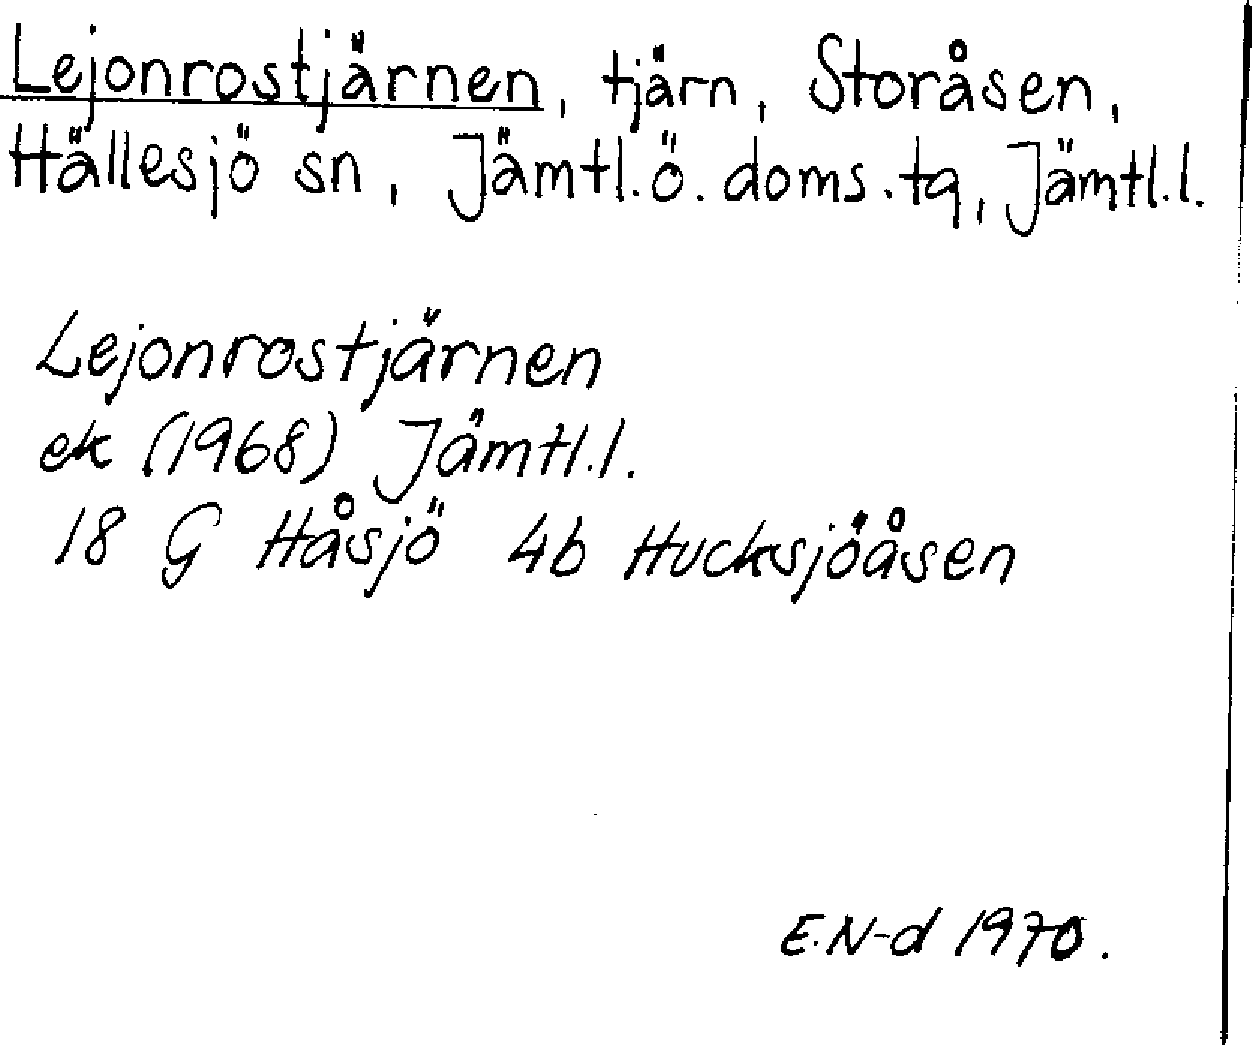 Lejonrostjärnen, tjärn, Storåsen,
Hällesjö sn, Jämtl.ö.doms.tg, Jämtl.l.
Lejonrostjärnen
ek (1968) Jämtl.l.
18 G Håsjö 4b Hucksjöåsen
E.N-d 1970.